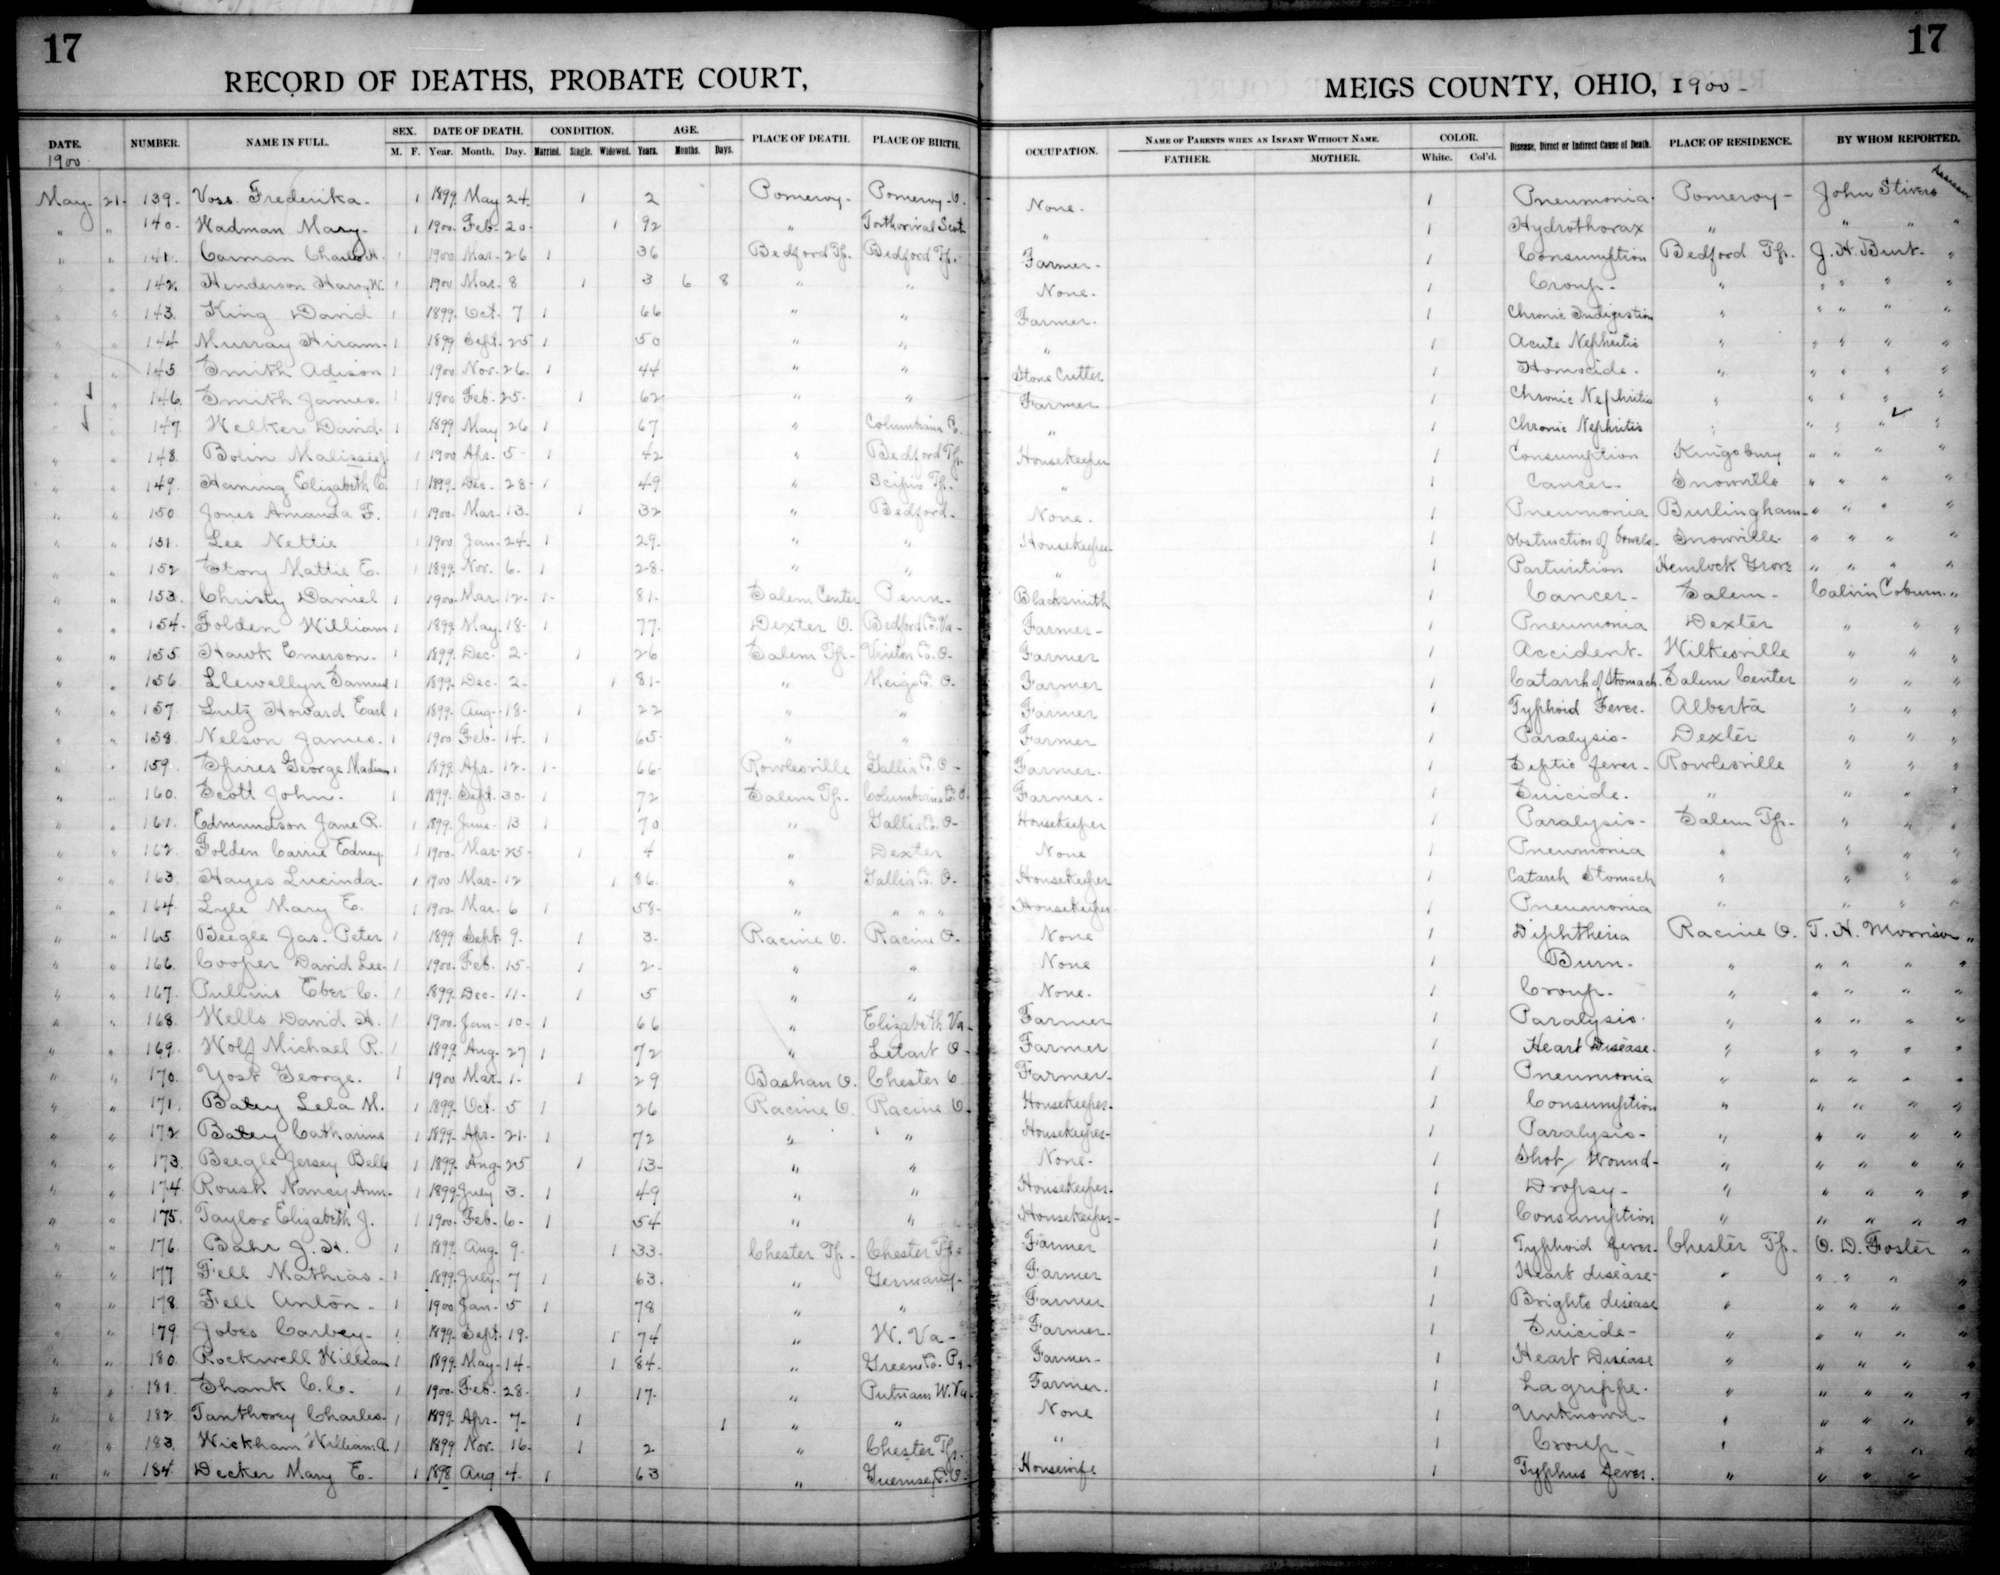 17 17
RECORD OF DEATHS, PROBATE COURT, MEIGS COUNTY, OHIO, 1900-
DATE. NUMBER. NAME IN FULL. SEX. DATE OF DEATH. CONDITION. AGE. PLACE OF DEATH. PLACE OF BIRTH. OCCUPATION. NAME OF PARENTS WHEN AN INFANT WITHOUT NAME. COLOR. Disease, Direct or Indirect Cause of Death. PLACE OF RESIDENCE. BY WHOM REPORTED.
1900 M. F. Year. Month. Day. Married. Single. Widowed. Years. Months. Days. FATHER. MOTHER. White. Col'd.
May 21 139 Voss Frederika 1 1899 May 24 1 2 Pomeroy Pomeroy O. None 1 Pneumonia Pomeroy John Stivers Assessor
" " 140 Hadman Mary 1 1900 Feb 20 1 92 " Torthorwal Scot " 1 Hydrothorax " " " "
" " 141 Carman Charles H. 1 1900 Mar 26 1 36 Bedford Tp. Bedford Tp. Farmer 1 Consumption Bedford Tp. J. H. Burt "
" " 142 Henderson Harry W. 1 1900 Mar 8 1 3 6 8 " " None 1 Croup " " " " "
" " 143 King David 1 1899 Oct 7 1 66 " " Farmer 1 Chronic Indigestion " " " " "
" " 144 Murray Hiram 1 1899 Sept 25 1 50 " " " 1 Acute Nephritis " " " " "
" " 145 Smith Adison 1 1900 Nov 26 1 44 " " Stone Cutter 1 Homocide " " " " "
" " 146 Smith James 1 1900 Feb 25 1 62 " " Farmer 1 Chronic Nephritis " " " " "
" " 147 Welker David 1 1899 May 26 1 67 " Columbiana Co. " 1 Chronic Nephritis " " " " "
" " 148 Bolin Malissie J. 1 1900 Apr 5 1 42 " Bedford Tp. Housekeeper 1 Consumption Kingsbury " " " "
" " 149 Haning Elizabeth C. 1 1899 Dec 28 1 49 " Scipio Tp. " 1 Cancer Snowville " " " "
" " 150 Jones Amanda F. 1 1900 Mar 13 1 32 " Bedford None 1 Pneumonia Burlingham " " " "
" " 151 Lee Nettie 1 1900 Jan 24 1 29 " " Housekeeper 1 Obstruction of bowels Snowville " " " "
" " 152 Story Mattie E. 1 1899 Nov. 6 1 28 " " " 1 Parturition Hemlock Grove " " " "
" " 153 Christy Daniel 1 1900 Mar 12 1 81 Salem Center Penn Blacksmith 1 Cancer Salem Calvin Coburn "
" " 154 Folden William 1 1899 May 18 1 77 Dexter O. Bedford Co. Va Farmer 1 Pneumonia Dexter " " "
" " 155 Hawk Emerson 1 1899 Dec 2 1 26 Salem Tp. Vinton Co. O. Farmer 1 Accident Wilkesville " " "
" " 156 Llewellyn Samuel 1 1899 Dec 2 1 81 " Meigs Co. O. Farmer 1 Catarrh of Stomach Salem Center " " "
" " 157 Lutz Howard Earl 1 1899 Aug 18 1 22 " " Farmer 1 Typhoid Fever Alberta " " "
" " 158 Nelson James 1 1900 Feb 14 1 65 " " Farmer 1 Paralysis Dexter " " "
" " 159 Spires George Madison 1 1899 Apr 12 1 66 Rowlesville Gallia Co. O. Farmer 1 Septic fever Rowlesville " " "
" " 160 Scott John 1 1899 Sept 30 1 72 Salem Tp. Columbiana Co. O. Farmer 1 Suicide " " " "
" " 161 Edmundson Jane R. 1 1899 June 13 1 70 " Gallia Co. O. Housekeeper 1 Paralysis Salem Tp. " " "
" " 162 Folden Carrie Edney 1 1900 Mar 25 1 4 " Dexter None 1 Pneumonia " " " "
" " 163 Hayes Lucinda 1 1900 Mar 12 1 86 " Gallia Co. O. Housekeeper 1 Catarrh Stomach " " " "
" " 164 Lyle Mary E. 1 1900 Mar 6 1 58 " " " " Housekeeper 1 Pneumonia " " " "
" " 165 Beegle Jas. Peter 1 1899 Sept 9 1 3 Racine O. Racine O. None 1 Diphtheria Racine O. T. H. Morrison "
" " 166 Cooper David Lee 1 1900 Feb 15 1 2 " " None 1 Burn " " " " "
" " 167 Pullins Eber C. 1 1899 Dec 11 1 5 " " None 1 Croup " " " " "
" " 168 Wells David H. 1 1900 Jan 10 1 66 " Elizabeth Va Farmer 1 Paralysis " " " " "
" " 169 Wolf Michael R. 1 1899 Aug 27 1 72 " Letart O. Farmer 1 Heart Disease " " " " "
" " 170 Yost George 1 1900 Mar 1 1 29 Bashan O. Chester O. Farmer 1 Pneumonia " " " " "
" " 171 Batey Lela M. 1 1899 Oct 5 1 26 Racine O. Racine O. Housekeeper 1 Consumption " " " " "
" " 172 Batey Catharine 1 1899 Apr 21 1 72 " " Housekeeper 1 Paralysis " " " " "
" " 173 Beegle Jersey Belle 1 1899 Aug 25 1 13 " " None 1 Shot Wound " " " " "
" " 174 Roush Nancy Ann 1 1899 July 3 1 49 " " Housekeeper 1 Dropsy " " " " "
" " 175 Taylor Elizabeth J. 1 1900 Feb 6 1 54 " " Housekeeper 1 Consumption " " " " "
" " 176 Bahr J. H. 1 1899 Aug 9 1 33 Chester Tp. Chester Tp. Farmer 1 Typhoid fever Chester Tp. O. D. Foster "
" " 177 Fell Mathias 1 1899 July 7 1 63 " Germany Farmer 1 Heart disease " " " " "
" " 178 Fell Anton 1 1900 Jan 5 1 78 " " Farmer 1 Brights disease " " " " "
" " 179 Jobes Carbey 1 1899 Sept 19 1 74 " W. Va Farmer 1 Suicide " " " " "
" " 180 Rockwell William 1 1899 May 14 1 84 " Greene Co. Pa Farmer 1 Heart Disease " " " " "
" " 181 Shank C. C. 1 1900 Feb 28 1 17 " Putnam W. Va Farmer 1 Lagrippe " " " " "
" " 182 Tanthorey Charles 1 1899 Apr 7 1 1 " " None 1 Unknown " " " " "
" " 183 Wickham William A. 1 1899 Nov. 16 1 2 " Chester Tp. " 1 Croup " " " " "
" " 184 Decker Mary E. 1 1898 Aug 4 1 63 " Guernsey Co. O. Housewife 1 Typhus fever " " " " "